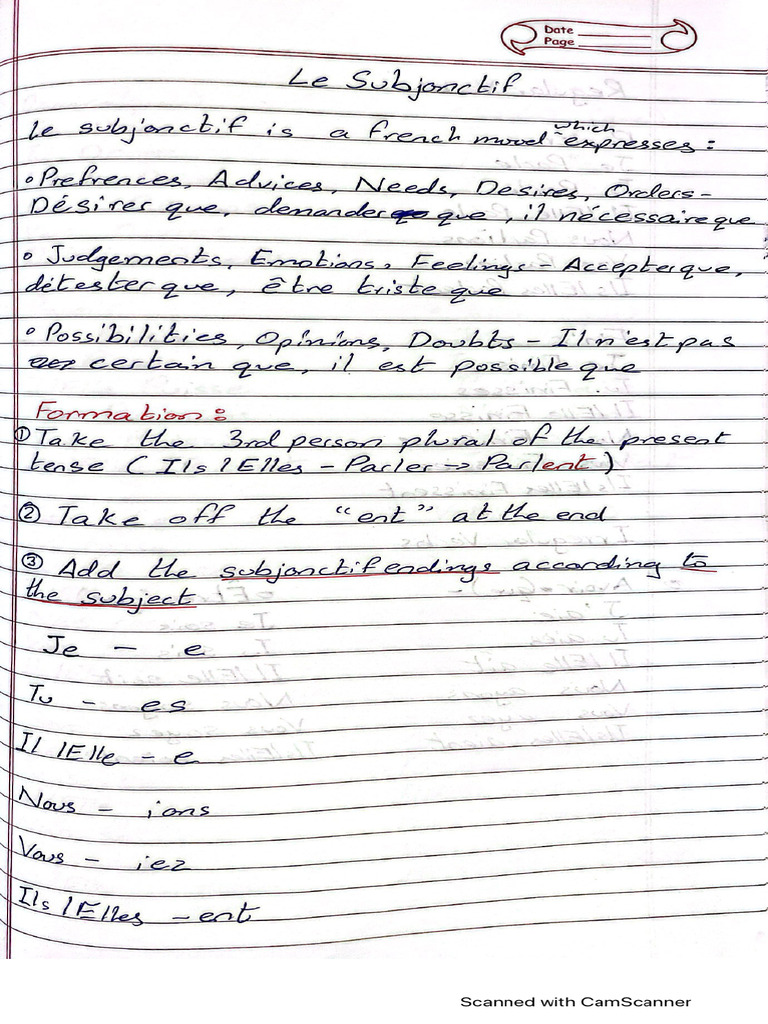 Date
Page
Le Subjonctif
Le subjonctif is a french mood which expresses :
• Prefrences, Advices, Needs, Desires, Orders -
Désirer que, demander que, il nécessaire que
• Judgements, Emotions, Feelings - Accepter que,
détester que, être triste que
• Possibilities, Opinions, Doubts - Il n'est pas
certain que, il est possible que
Formation :
① Take the 3rd person plural of the present
tense (Ils / Elles - Parler -> Parlent)
② Take off the "ent" at the end
③ Add the subjonctif endings according to
the subject
Je - e
Tu - es
Il / Elle - e
Nous - ions
Vous - iez
Ils / Elles - ent
Scanned with CamScanner